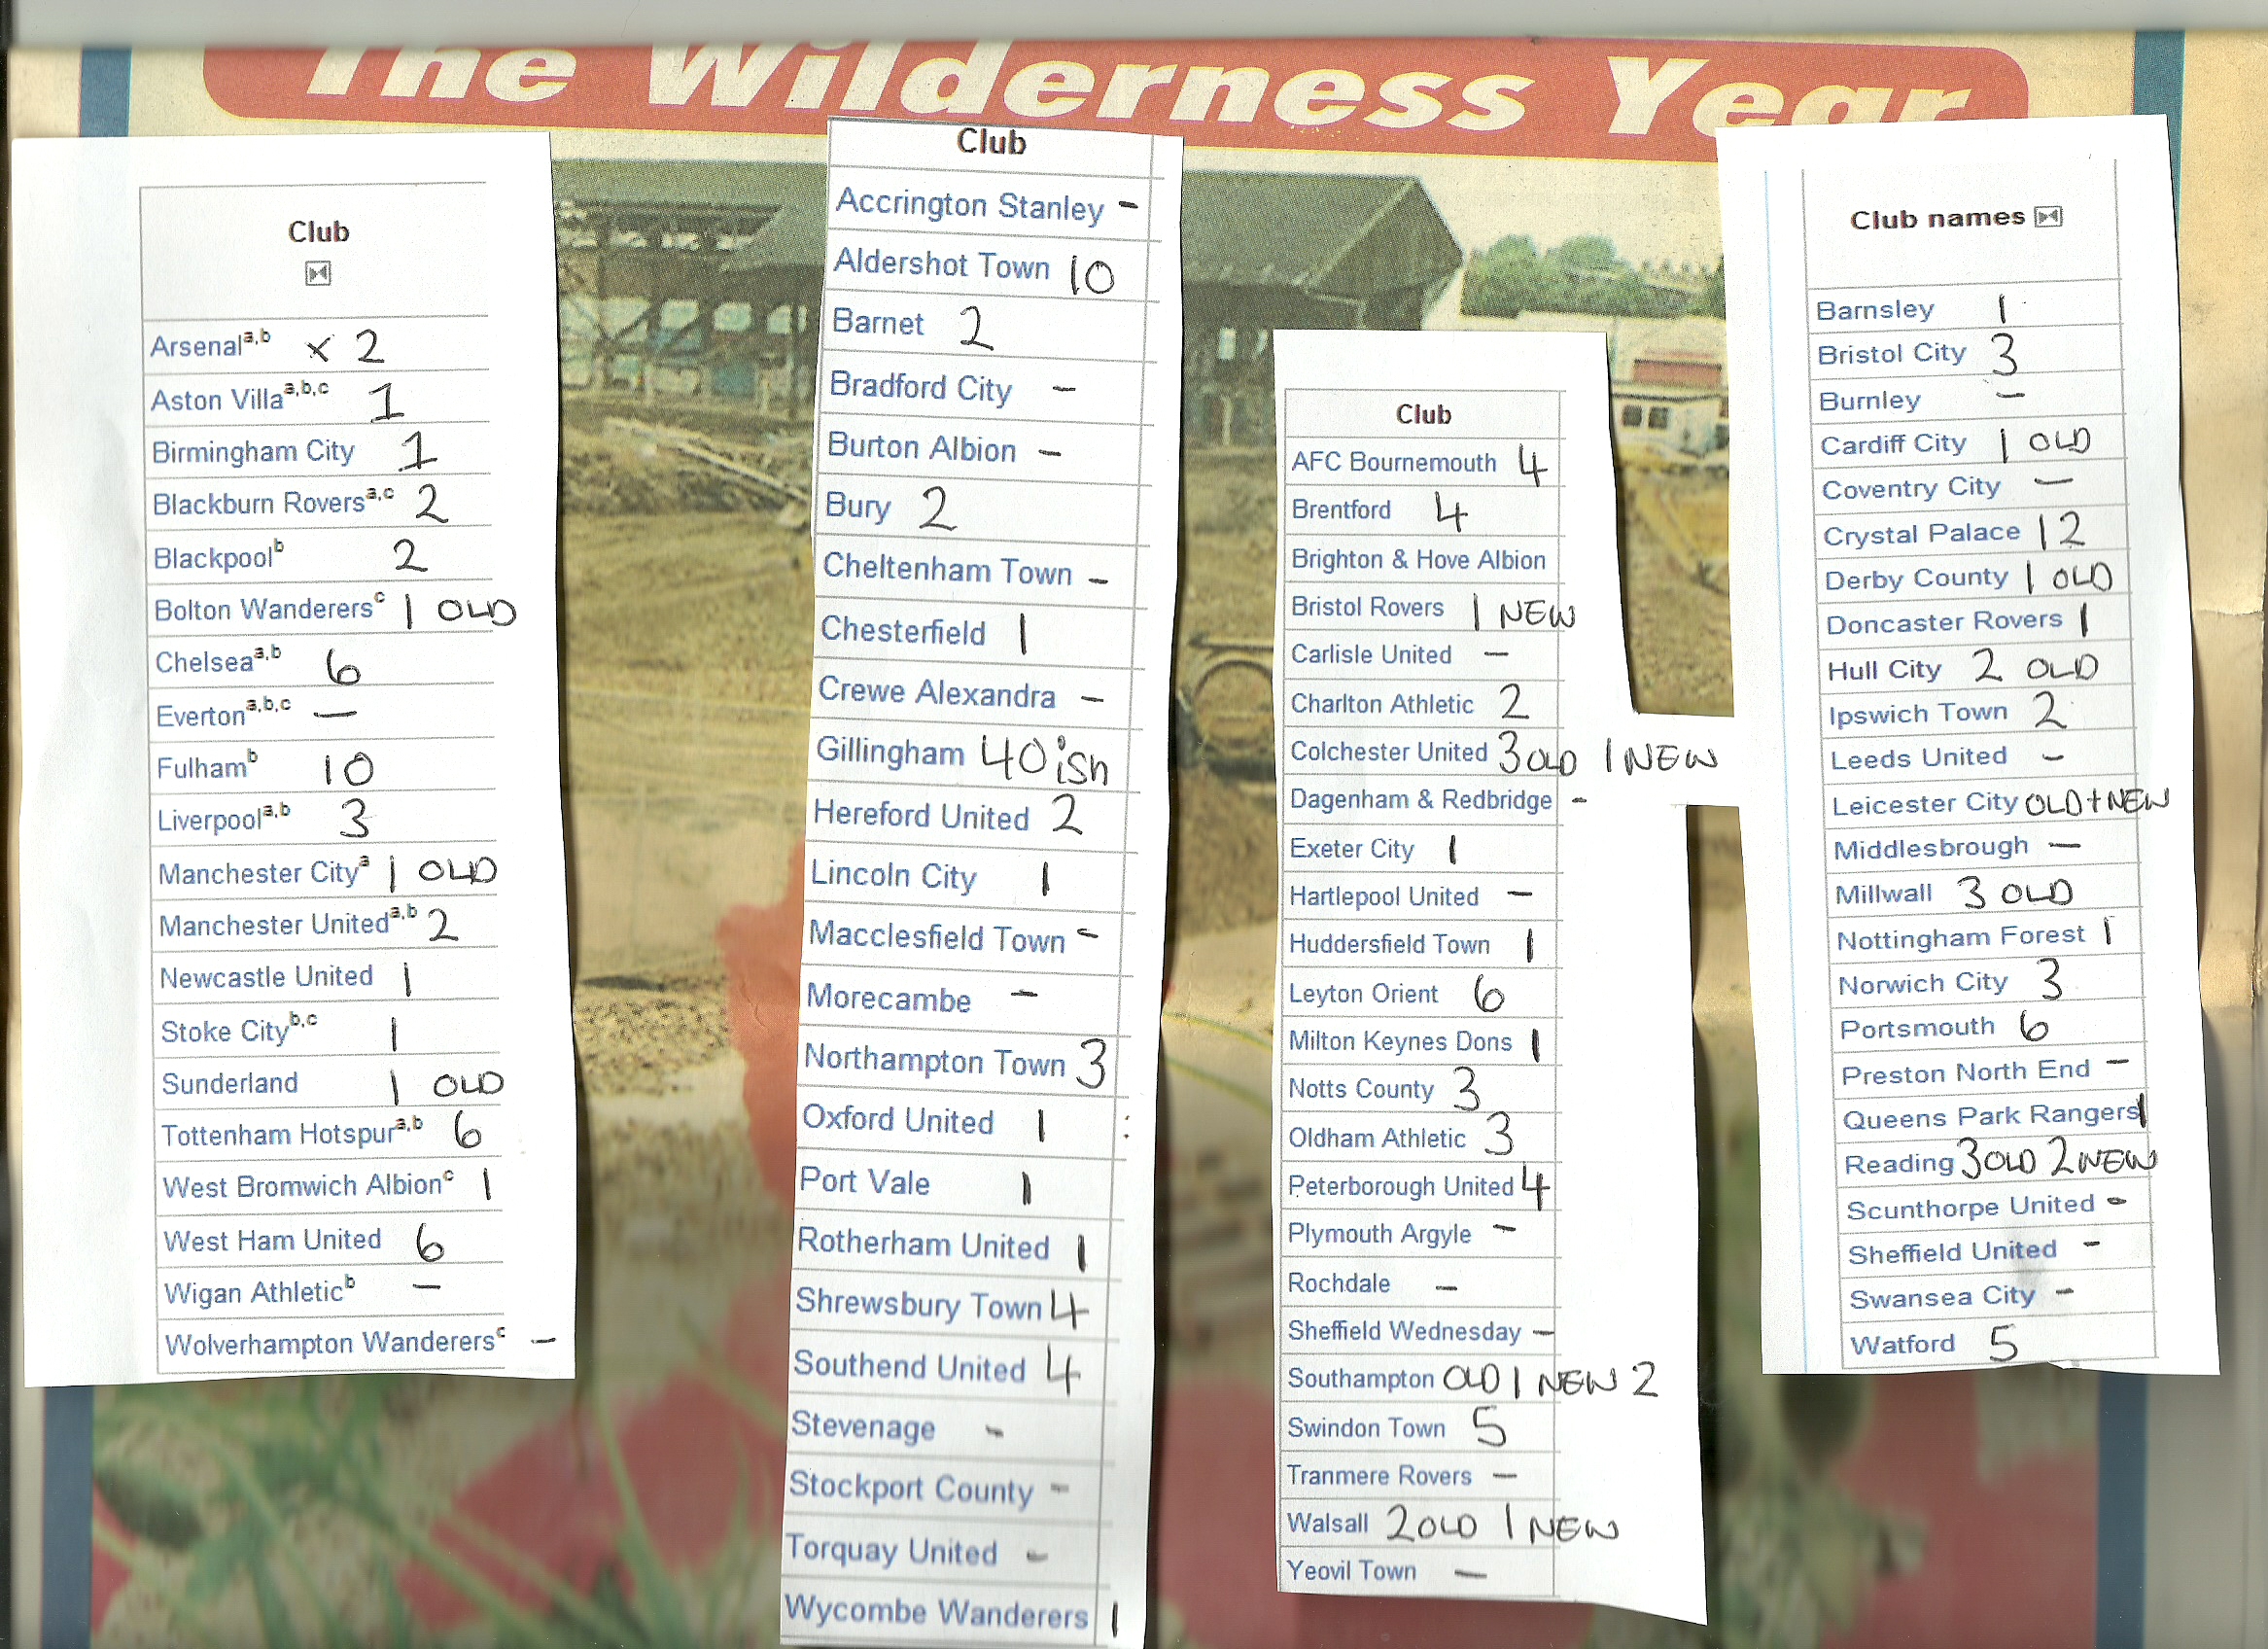 The Wilderness Year
Club
Arsenal a,b × 2
Aston Villa a,b,c 1
Birmingham City 1
Blackburn Rovers a,c 2
Blackpool b 2
Bolton Wanderers c 1 OLD
Chelsea a,b 6
Everton a,b,c —
Fulham b 10
Liverpool a,b 3
Manchester City a 1 OLD
Manchester United a,b 2
Newcastle United 1
Stoke City b,c 1
Sunderland 1 OLD
Tottenham Hotspur a,b 6
West Bromwich Albion c 1
West Ham United 6
Wigan Athletic b —
Wolverhampton Wanderers c —
Club
Accrington Stanley -
Aldershot Town 10
Barnet 2
Bradford City -
Burton Albion -
Bury 2
Cheltenham Town -
Chesterfield 1
Crewe Alexandra -
Gillingham 40ish
Hereford United 2
Lincoln City 1
Macclesfield Town -
Morecambe -
Northampton Town 3
Oxford United 1
Port Vale 1
Rotherham United 1
Shrewsbury Town 4
Southend United 4
Stevenage -
Stockport County -
Torquay United -
Wycombe Wanderers 1
Club
AFC Bournemouth 4
Brentford 4
Brighton & Hove Albion
Bristol Rovers 1 NEW
Carlisle United -
Charlton Athletic 2
Colchester United 3 OLD 1 NEW
Dagenham & Redbridge -
Exeter City 1
Hartlepool United -
Huddersfield Town 1
Leyton Orient 6
Milton Keynes Dons 1
Notts County 3
Oldham Athletic 3
Peterborough United 4
Plymouth Argyle -
Rochdale -
Sheffield Wednesday -
Southampton OLD 1 NEW 2
Swindon Town 5
Tranmere Rovers -
Walsall 2 OLD 1 NEW
Yeovil Town -
Club names
Barnsley 1
Bristol City 3
Burnley -
Cardiff City 1 OLD
Coventry City -
Crystal Palace 12
Derby County 1 OLD
Doncaster Rovers 1
Hull City 2 OLD
Ipswich Town 2
Leeds United -
Leicester City OLD+NEW
Middlesbrough -
Millwall 3 OLD
Nottingham Forest 1
Norwich City 3
Portsmouth 6
Preston North End -
Queens Park Rangers 1
Reading 3 OLD 2 NEW
Scunthorpe United -
Sheffield United -
Swansea City -
Watford 5